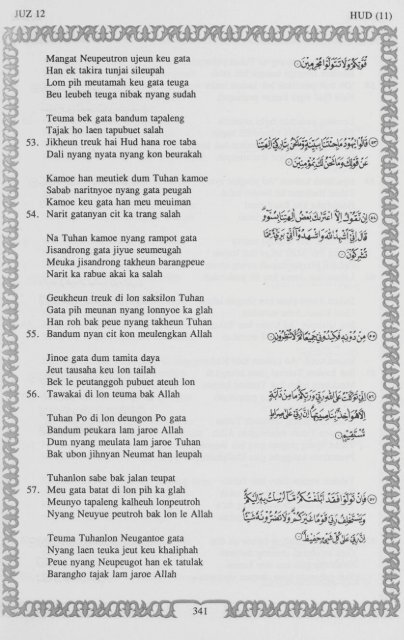 JUZ 12
HUD (11)
Mangat Neupeutron ujeun keu gata
Han ek takira tunjai sileupah
Lom pih meutamah keu gata teuga
Beu leubeh teuga nibak nyang sudah
قُوَّتِكُمْ وَلَا تَتَوَلَّوْا مُجْرِمِينَ
Teuma bek gata bandum tapaleng
Tajak ho laen tapubuet salah
53. Jikheun treuk hai Hud hana roe taba
Dali nyang nyata nyang kon beurakah
٥٣ قَالُوا يَا هُودُ مَا جِئْتَنَا بِبَيِّنَةٍ وَمَا نَحْنُ بِتَارِكِي آلِهَتِنَا
عَنْ قَوْلِكَ وَمَا نَحْنُ لَكَ بِمُؤْمِنِينَ
Kamoe han meutiek dum Tuhan kamoe
Sabab naritnyoe nyang gata peugah
Kamoe keu gata han meu meuiman
54. Narit gatanyan cit ka trang salah
٥٤ إِنْ نَقُولُ إِلَّا اعْتَرَاكَ بَعْضُ آلِهَتِنَا بِسُوءٍ
قَالَ إِنِّي أُشْهِدُ اللَّهَ وَاشْهَدُوا أَنِّي بَرِيءٌ مِمَّا
تُشْرِكُونَ
Na Tuhan kamoe nyang rampot gata
Jisandrong gata jiyue seumeugah
Meuka jisandrong takheun barangpeue
Narit ka rabue akai ka salah
Geukheun treuk di lon saksilon Tuhan
Gata pih meunan nyang lonnyoe ka glah
Han roh bak peue nyang takheun Tuhan
55. Bandum nyan cit kon meulengkan Allah
٥٥ مِنْ دُونِهِ فَكِيدُونِي جَمِيعًا ثُمَّ لَا تُنْظِرُونِ
Jinoe gata dum tamita daya
Jeut tausaha keu lon tailah
Bek le peutanggoh pubuet ateuh lon
56. Tawakai di lon teuma bak Allah
٥٦ إِنِّي تَوَكَّلْتُ عَلَى اللَّهِ رَبِّي وَرَبِّكُمْ مَا مِنْ دَابَّةٍ
إِلَّا هُوَ آخِذٌ بِنَاصِيَتِهَا إِنَّ رَبِّي عَلَى صِرَاطٍ
مُسْتَقِيمٍ
Tuhan Po di lon deungon Po gata
Bandum peukara lam jaroe Allah
Dum nyang meulata lam jaroe Tuhan
Bak ubon jihnyan Neumat han leupah
Tuhanlon sabe bak jalan teupat
57. Meu gata batat di lon pih ka glah
Meunyo tapaleng kalheuh lonpeutroh
Nyang Neuyue peutroh bak lon le Allah
٥٧ فَإِنْ تَوَلَّوْا فَقَدْ أَبْلَغْتُكُمْ مَا أُرْسِلْتُ بِهِ إِلَيْكُمْ
وَيَسْتَخْلِفُ رَبِّي قَوْمًا غَيْرَكُمْ وَلَا تَضُرُّونَهُ شَيْئًا
إِنَّ رَبِّي عَلَى كُلِّ شَيْءٍ حَفِيظٌ
Teuma Tuhanlon Neugantoe gata
Nyang laen teuka jeut keu khaliphah
Peue nyang Neupeugot han ek tatulak
Barangho tajak lam jaroe Allah
341